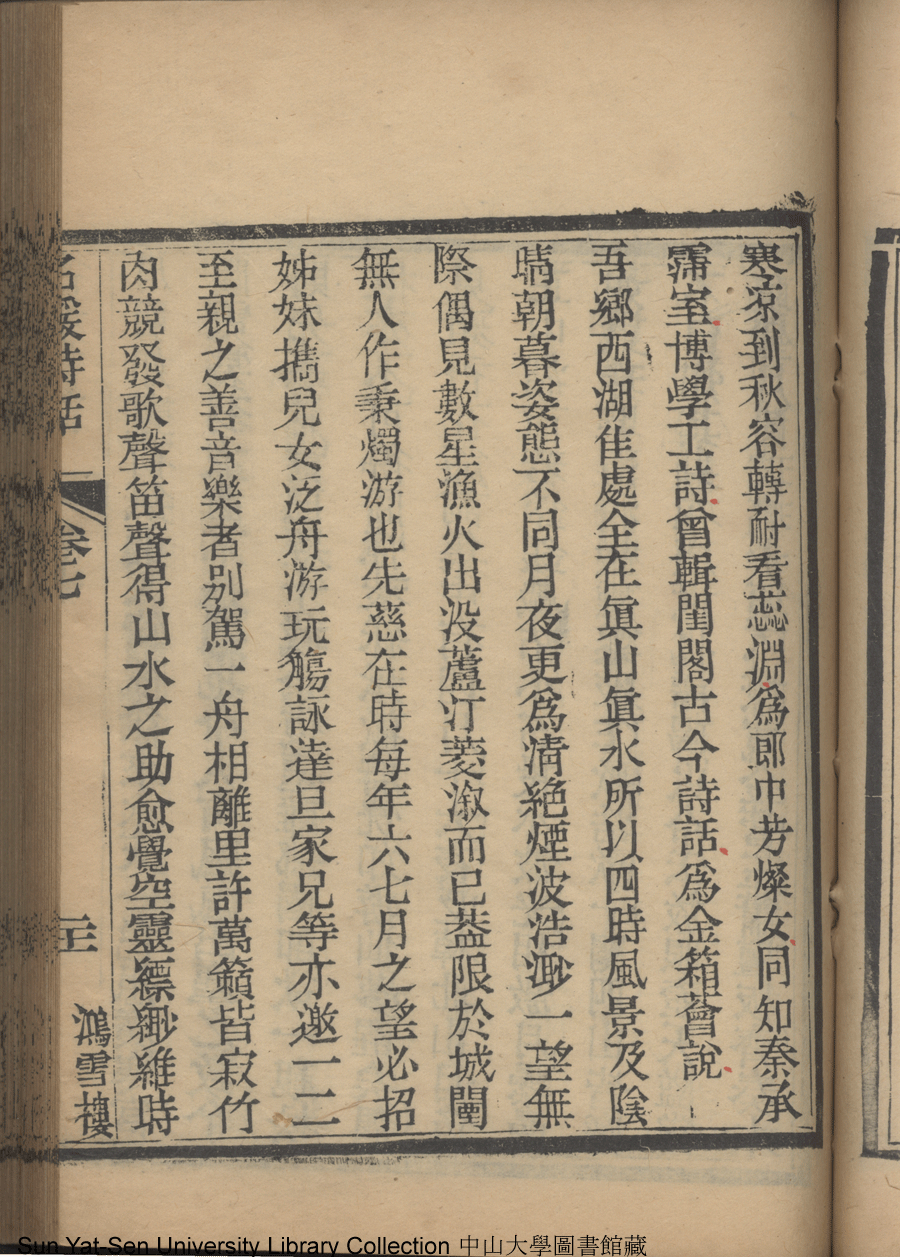 寒凉到秋容轉耐看蕊淵爲郎中芳燦女同知秦承
霈室博學工詩曾輯閨閣古今詩話爲金箱薈說
吾鄉西湖佳處全在眞山眞水所以四時風景及陰
晴朝暮姿態不同月夜更爲淸絶煙波浩渺一望無
際偶見數星漁火出没蘆汀菱溆而已葢限於城闉
無人作秉燭游也先慈在時每年六七月之望必招
姊妹攜兒女泛舟游玩觴詠達旦家兄等亦邀一二
至親之善音樂者別駕一舟相離里許萬籟皆寂竹
肉競發歌聲笛聲得山水之助愈覺空靈縹緲維時
名媛詩話 卷七 二 鴻雪樓
Sun Yat-Sen University Library Collection 中山大學圖書館藏